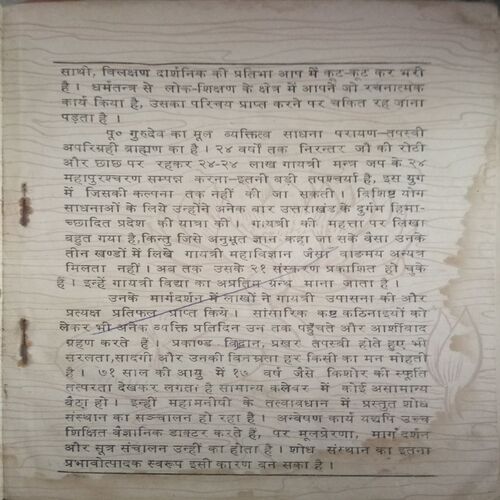 साथी, विलक्षण दार्शनिक की प्रतिभा आप में कूट-कूट कर भरी
है । धर्मतन्त्र से लोक-शिक्षण के क्षेत्र में आपने जो रचनात्मक
कार्य किया है, उसका परिचय प्राप्त करने पर चकित रह जाना
पड़ता है ।
पू० गुरुदेव का मूल व्यक्तित्व साधना परायण-तपस्वी
अपरिग्रही ब्राह्मण का है । २४ वर्षों तक निरन्तर जौ की रोटी
और छाछ पर रहकर २४-२४ लाख गायत्री मन्त्र जप के २४
महापुरश्चरण सम्पन्न करना-इतनी बड़ी तपश्चर्या है, इस युग
में जिसकी कल्पना तक नहीं की जा सकती । विशिष्ट योग
साधनाओं के लिये उन्होंने अनेक बार उत्तराखंड के दुर्गम हिमा-
च्छादित प्रदेश की यात्रा की । गायत्री की महत्ता पर लिखा
बहुत गया है,किन्तु जिसे अनुभूत ज्ञान कहा जा सके वैसा उनके
तीन खण्डों में लिखे गायत्री महाविज्ञान जैसा वाङमय अन्यत्र
मिलता नहीं । अब तक उसके २१ संस्करण प्रकाशित हो चुके
हैं । इन्हें गायत्री विद्या का अप्रतिम ग्रन्थ माना जाता है ।
उनके मार्गदर्शन में लाखों ने गायत्री उपासना की और
प्रत्यक्ष प्रतिफल प्राप्त किये । सांसारिक कष्ट कठिनाइयों को
लेकर भी अनेक व्यक्ति प्रतिदिन उन तक पहुँचते और आर्शीवाद
ग्रहण करते हैं । प्रकाण्ड विद्वान, प्रखर तपस्वी होते हुए भी
सरलता,सादगी और उनकी विनम्रता हर किसी का मन मोहती
है । ७१ साल की आयु में १७ वर्ष जैसे किशोर की स्फूर्ति
तत्परता देखकर लगता है सामान्य कलेवर में कोई असामान्य
बैठा हो । इन्हीं महामनीषी के तत्वावधान में प्रस्तुत शोध
संस्थान का सञ्चालन हो रहा है । अन्वेषण कार्य यद्यपि उच्च
शिक्षित वैज्ञानिक डाक्टर करते हैं, पर मूलप्रेरणा, मार्ग दर्शन
और सूत्र संचालन उन्हीं का होता है । शोध संस्थान का इतना
प्रभावोत्पादक स्वरूप इसी कारण बन सका है ।